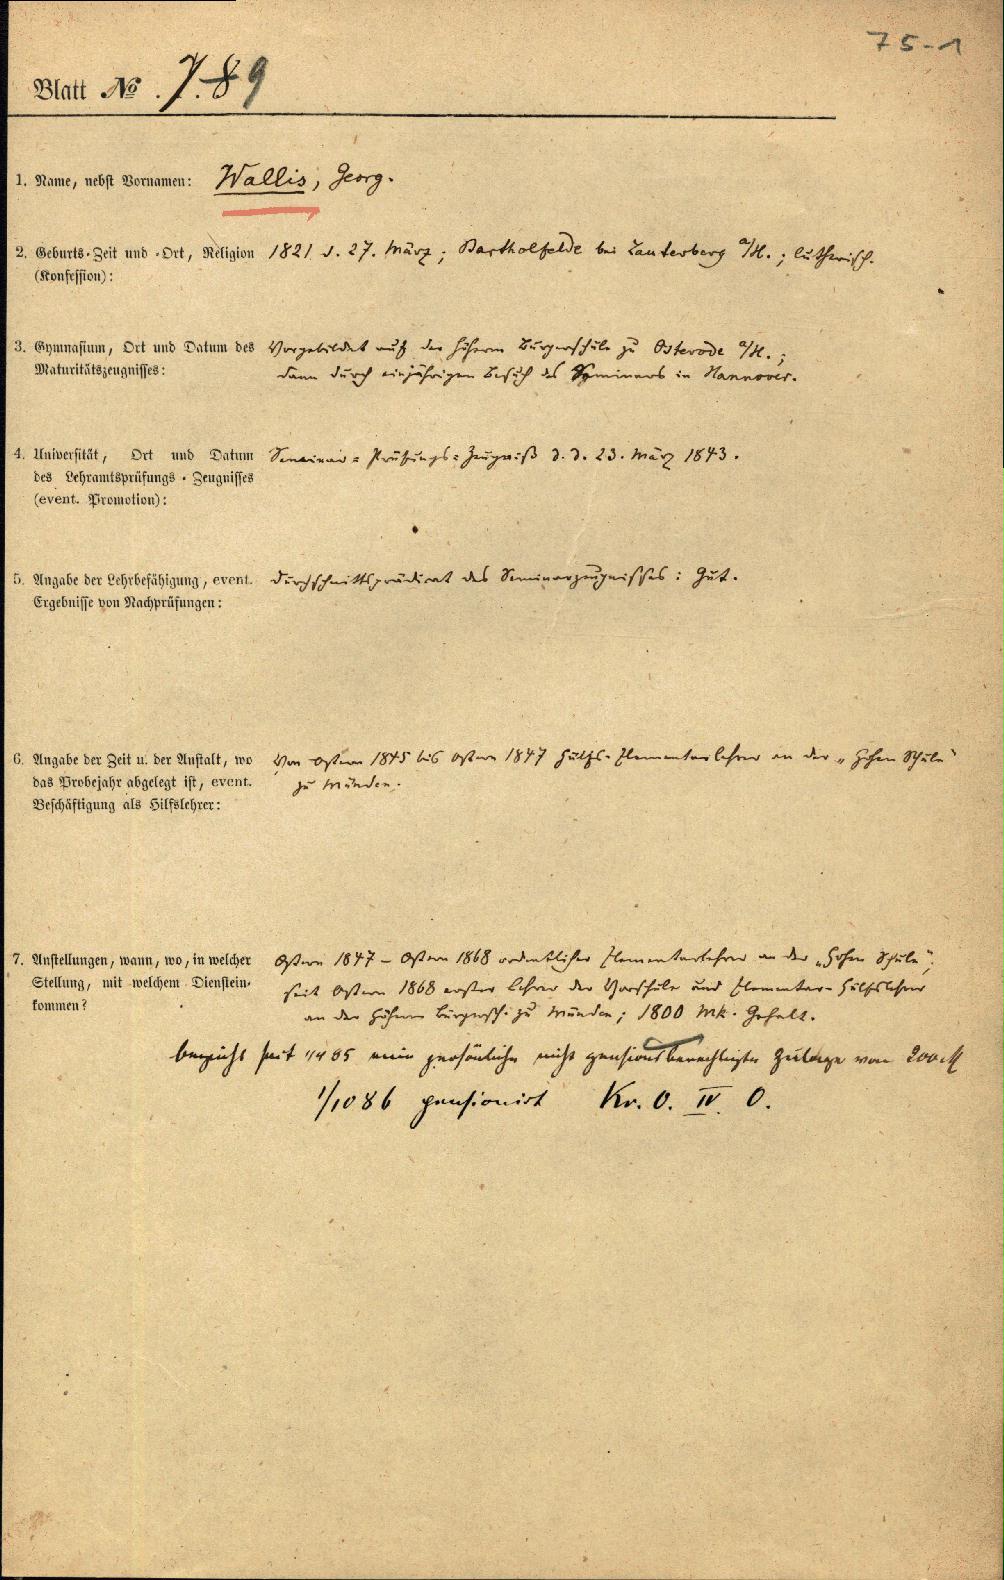 75-1
Blatt No. 7. 8 9
1. Name, nebst Vornamen: Wallis, Georg.
2. Geburts-Zeit und -Ort, Religion 1821 d. 27. März; Bartholfelde bei Lauterberg a/H.; lutherisch.
(Konfession):
3. Gymnasium, Ort und Datum des Vorgebildet auf der höhern Bürgerschule zu Osterode a/H.;
Maturitätszeugnisses: dann durch einjährigen Besuch des Seminars in Hannover.
4. Universität, Ort und Datum Seminar-Prüfungs-Zeugniß d. d. 23. März 1843.
des Lehramtsprüfungs-Zeugnisses
(event. Promotion):
5. Angabe der Lehrbefähigung, event. Durchschnittsprädicat des Seminarzeugnisses: Gut.
Ergebnisse von Nachprüfungen:
6. Angabe der Zeit u. der Anstalt, wo Von Ostern 1845 bis Ostern 1847 Hülfs-Elementarlehrer an der „Hohen Schule"
das Probejahr abgelegt ist, event. zu Münden.
Beschäftigung als Hilfslehrer:
7. Anstellungen, wann, wo, in welcher Ostern 1847 – Ostern 1868 ordentlicher Elementarlehrer an der „Hohen Schule",
Stellung, mit welchem Dienstein- seit Ostern 1868 erster Lehrer der Vorschule und Elementar-Hülfslehrer
kommen? an der Höhern Bürgersch. zu Münden; 1800 Mk. Gehalt.
bezieht seit 1/4 85 eine persönliche nicht pensionsberechtigte Zulage von 200 M
1/10 86 pensionirt Kr. O. IV. O.